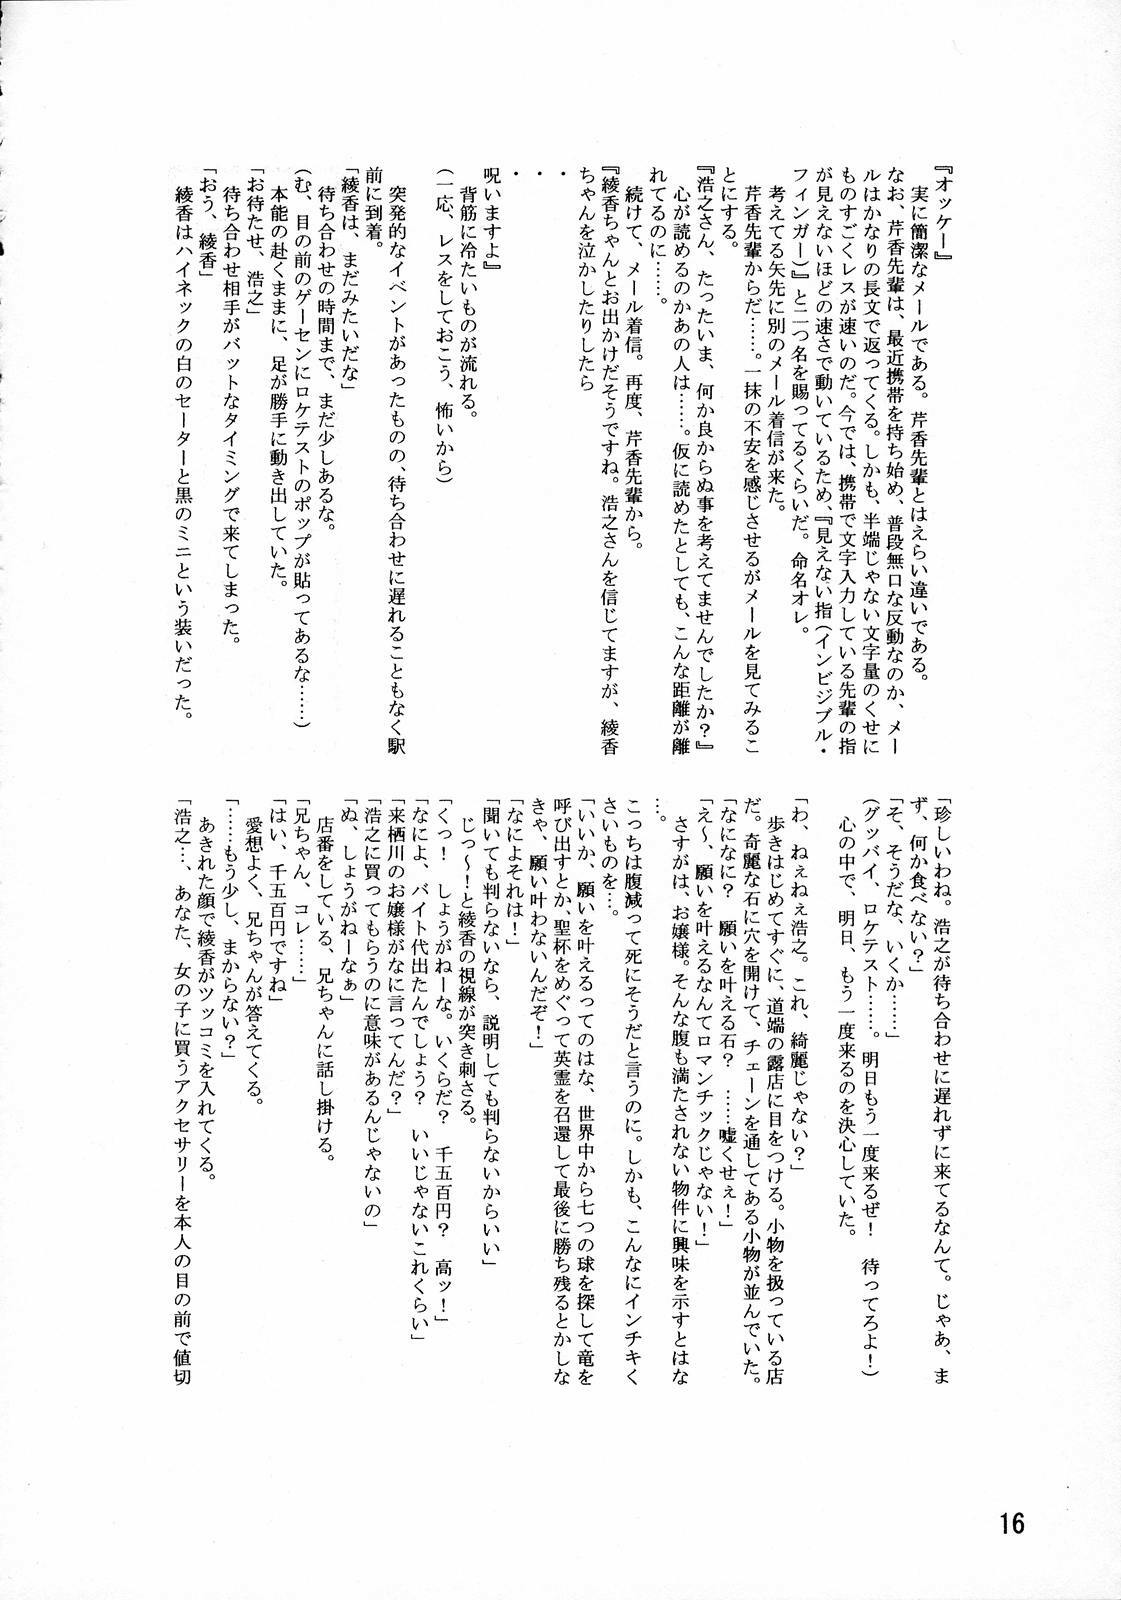 『オッケー』
　実に簡潔なメールである。芹香先輩とはえらい違いである。
なお、芹香先輩は、最近携帯を持ち始め、普段無口な反動なのか、メー
ルはかなりの長文で返ってくる。しかも、半端じゃない文字量のくせに
ものすごくレスが速いのだ。今では、携帯で文字入力している先輩の指
が見えないほどの速さで動いているため、『見えない指(インビジブル・
フィンガー)』と二つ名を賜ってるくらいだ。命名オレ。
　考えてる矢先に別のメール着信が来た。
　芹香先輩からだ……。一抹の不安を感じさせるがメールを見てみるこ
とにする。
『浩之さん、たったいま、何か良からぬ事を考えてませんでしたか？』
　心が読めるのかあの人は……。仮に読めたとしても、こんな距離が離
れてるのに……。
　続けて、メール着信。再度、芹香先輩から。
『綾香ちゃんとお出かけだそうですね。浩之さんを信じてますが、綾香
ちゃんを泣かしたりしたら
・
・
・
呪いますよ』
　背筋に冷たいものが流れる。
(一応、レスをしておこう、怖いから)
　突発的なイベントがあったものの、待ち合わせに遅れることもなく駅
前に到着。
「綾香は、まだみたいだな」
　待ち合わせの時間まで、まだ少しあるな。
(む、目の前のゲーセンにロケテストのポップが貼ってあるな……)
　本能の赴くままに、足が勝手に動き出していた。
「お待たせ、浩之」
　待ち合わせ相手がバットなタイミングで来てしまった。
「おう、綾香」
　綾香はハイネックの白のセーターと黒のミニという装いだった。
「珍しいわね。浩之が待ち合わせに遅れずに来てるなんて。じゃあ、ま
ず、何か食べない？」
「そ、そうだな、いくか……」
(グッバイ、ロケテスト……。明日もう一度来るぜ！　待ってろよ！)
　心の中で、明日、もう一度来るのを決心していた。
「わ、ねぇねぇ浩之。これ、綺麗じゃない？」
　歩きはじめてすぐに、道端の露店に目をつける。小物を扱っている店
だ。奇麗な石に穴を開けて、チェーンを通してある小物が並んでいた。
「なになに？　願いを叶える石？　……嘘くせぇ！」
「え～、願いを叶えるなんてロマンチックじゃない！」
　さすがは、お嬢様。そんな腹も満たされない物件に興味を示すとはな
…。
こっちは腹減って死にそうだと言うのに。しかも、こんなにインチキく
さいものを…。
「いいか、願いを叶えるってのはな、世界中から七つの球を探して竜を
呼び出すとか、聖杯をめぐって英霊を召還して最後に勝ち残るとかしな
きゃ、願い叶わないんだぞ！」
「なによそれは！」
「聞いても判らないなら、説明しても判らないからいい」
　じっ～！と綾香の視線が突き刺さる。
「くっ！　しょうがねーな。いくらだ？　千五百円？　高ッ！」
「なによ、バイト代出たんでしょう？　いいじゃないこれくらい」
「来栖川のお嬢様がなに言ってんだ？」
「浩之に買ってもらうのに意味があるんじゃないの」
「ぬ、しょうがねーなぁ」
　店番をしている、兄ちゃんに話し掛ける。
「兄ちゃん、コレ……」
「はい、千五百円ですね」
　愛想よく、兄ちゃんが答えてくる。
「……もう少し、まからない？」
　あきれた顔で綾香がツッコミを入れてくる。
「浩之…、あなた、女の子に買うアクセサリーを本人の目の前で値切
16